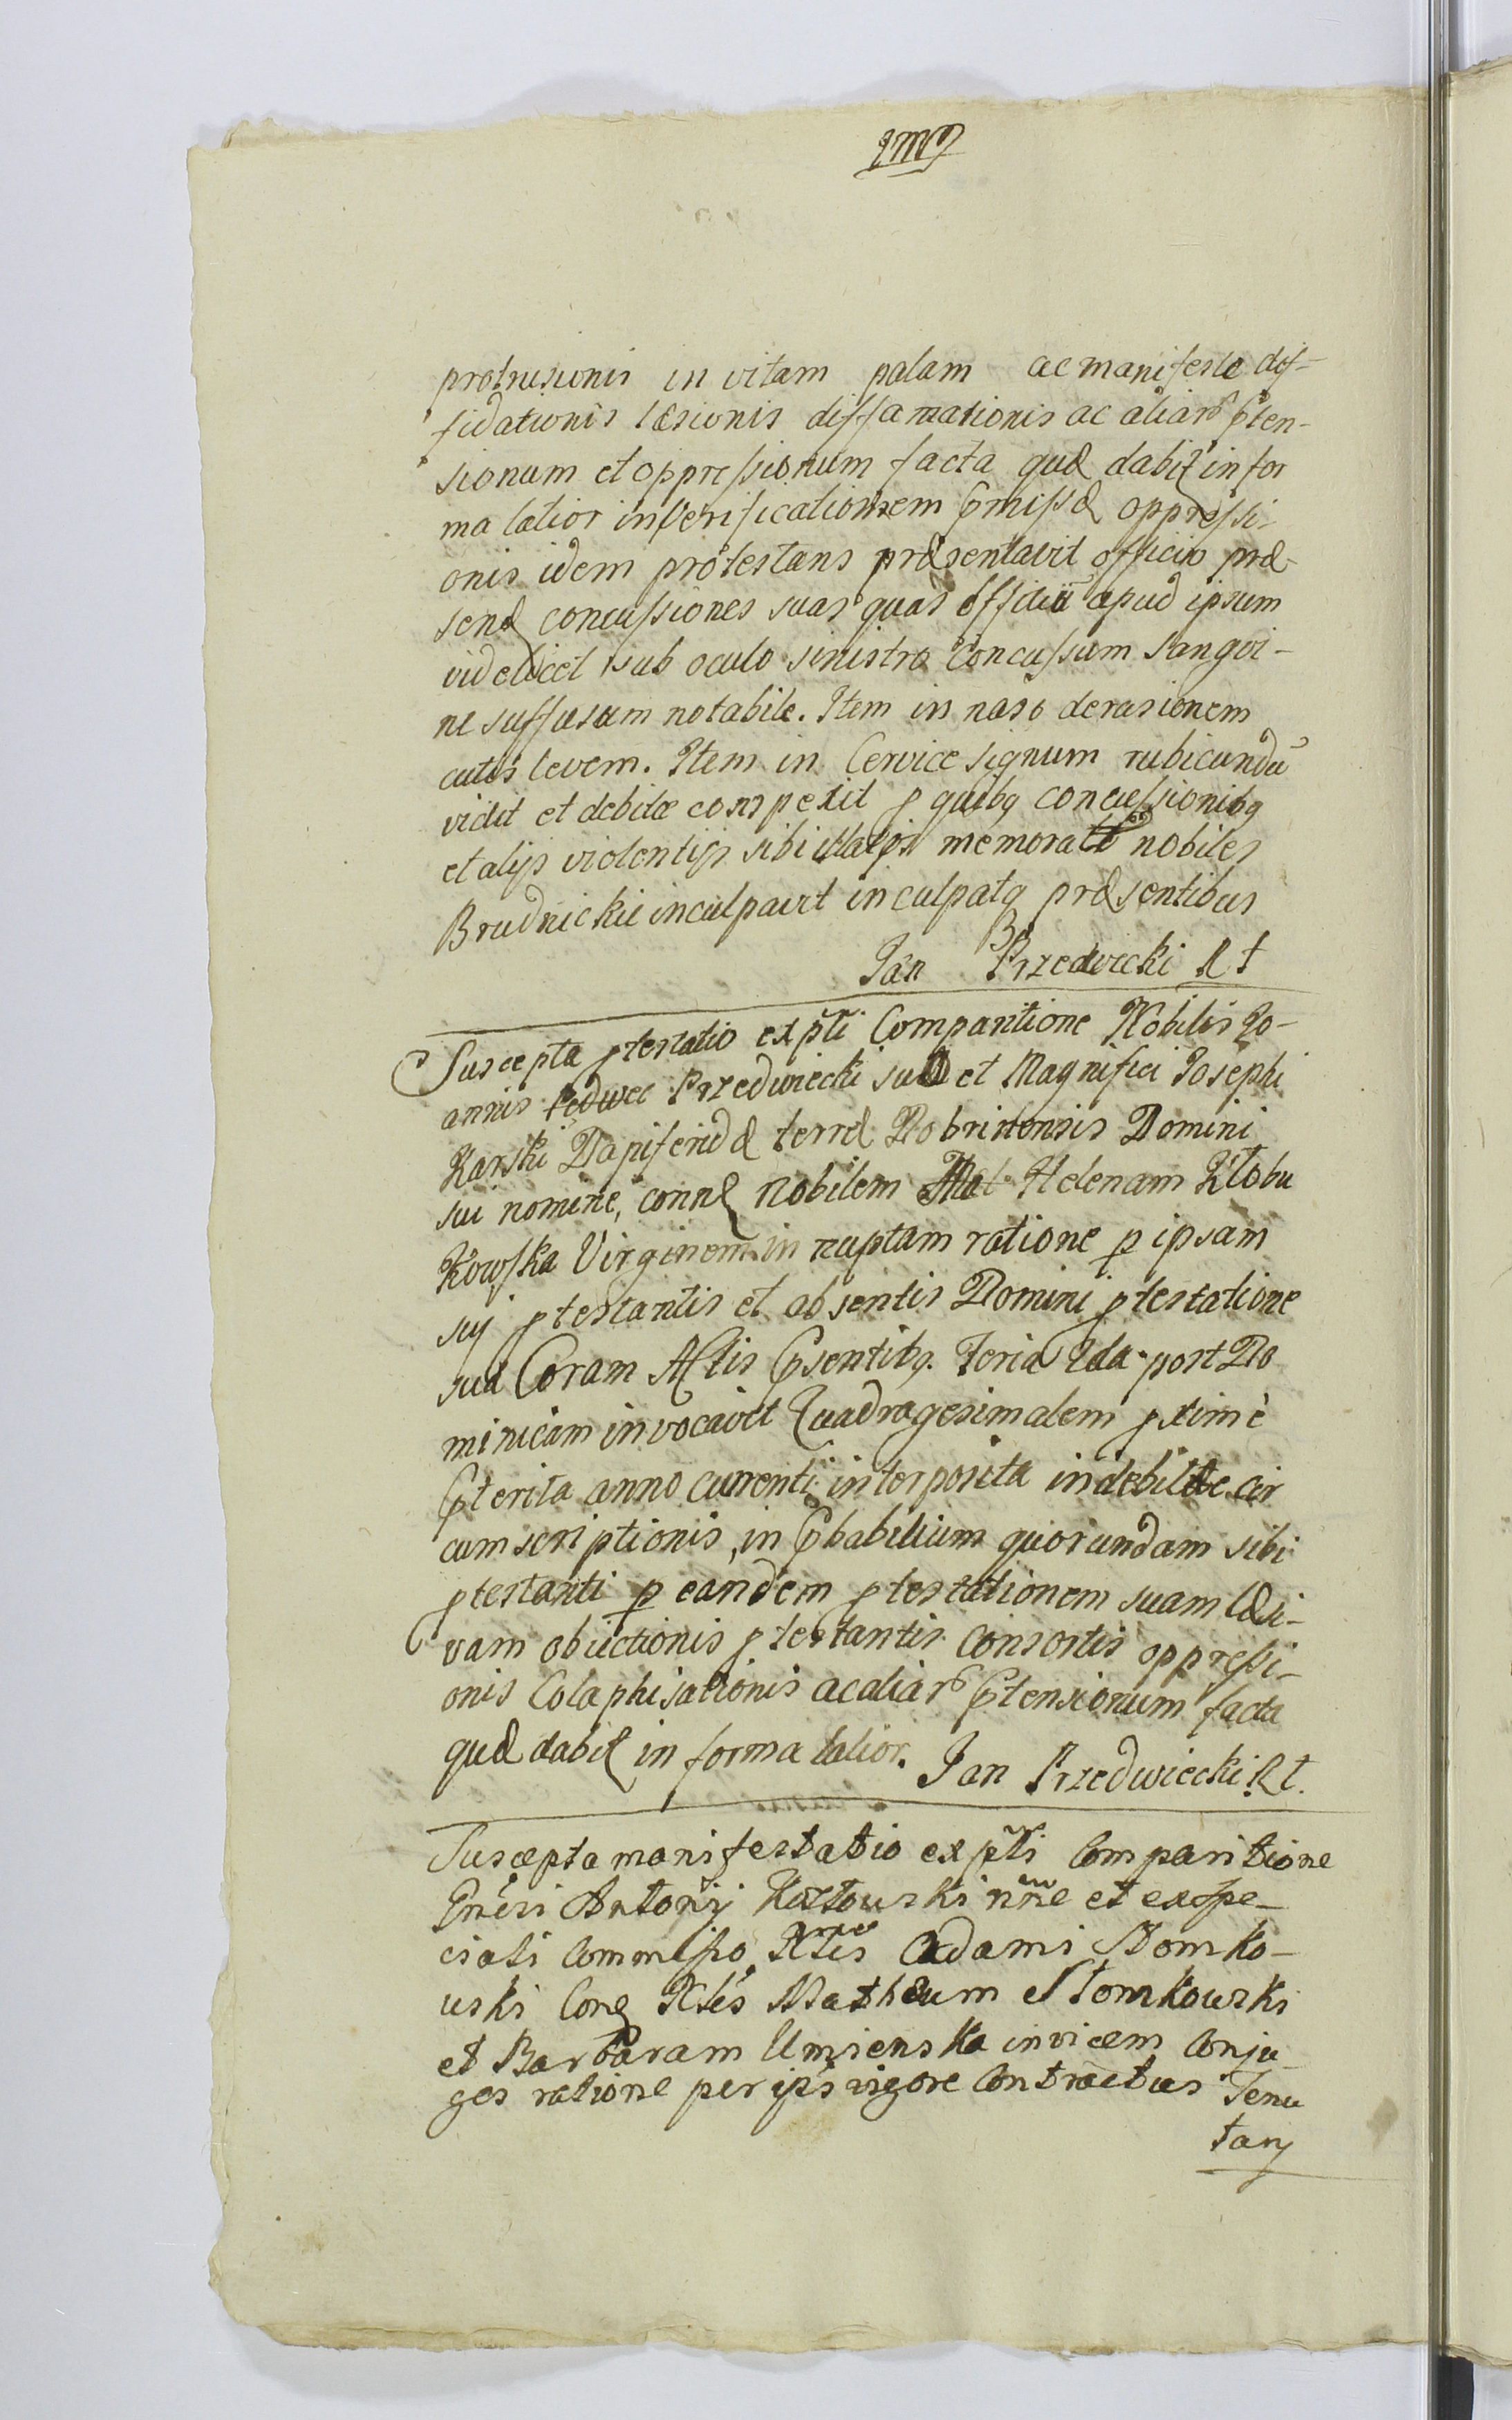 protrusionis in vitam palam ac manifesto dif-
fidationis læsionis diffamationis ac aliar Pten-
sionum et oppressionum facta quæ dabit in for
ma latior in verificationem Pmissæ oppressi-
onis idem protestans præsentavit officio præ-
senti concussiones suas quas officiū apud ipsum
videlicet sub oculo sinistro Concussum sangvi-
ne suffusum notabile. Item in naso derasionem
cutis levem. Item in Cervice signum rubicundū
vidit et debitæ conspexit p quibq concussionibq
et alijs violentijs sibi illatis memorat nobiles
Brudnickie inculpavit inculpatq præsentibus
Jan Przedwiecki R t
Suscepta ptestatio ex pti Comparitione Nobilis Jo-
annis Przedwiecki suo et Magnifici Josephi
Karski Dapiferidæ terræ Dobrinensis Domini
sui nomine, connæ Nobilem Helenam Kłobu
Kowska Virginem in nuptam ratione p ipsam
sui ptestantis et absentis Domini ptestatione
sua Coram Actis Psentibq. Feria 2da post Do
minicam invocavit Quadragesimalem pxime
Pterita anno currenti interposita indebite cir
cumscriptionis, in Pbabilium quorundam sibi
ptestanti p eandem ptestationem suam Læsi-
vam obiectionis ptestantis Consortis oppressi-
onis Colaphisationis ac aliar Ptensionum facta
quæ dabit in forma latior. Jan Przedwiecki R t.
Suscepta manifestatio ex pti Comparitione
Gnēsi Antonij Kozłowski nne et ex spe-
ciali Commisso Nlis Adami Słomko-
wski Cong Nles Mathæum Słomkowski
et Barbaram Umienska invicem Conju-
ges ratione per ips vigore Contractus Tenu
tarij